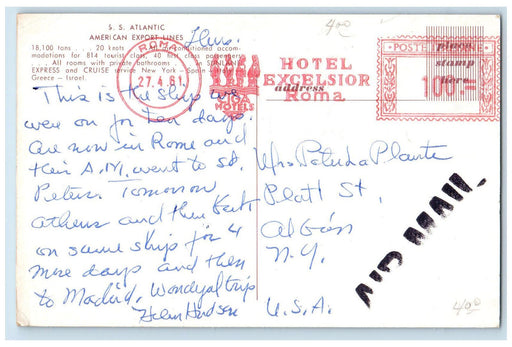 400
S. S. ATLANTIC
AMERICAN EXPORT LINES
Thurs.
18,100 tons . . . 20 knots
accom-
modations for 814 tourist class, 40 first class passengers
. . . All rooms with private bathrooms
SUNLANE
EXPRESS and CRUISE service New York - Spain
Greece - Israel.
ROMA
27.4.61
CIGA
HOTELS
HOTEL
EXCELSIOR
Roma
address
POSTE
100
place
stamp
here
This is the ship we
were on for ten days.
Are now in Rome and
this A.M. went to St.
Peters. Tomorrow
Athens and then back
on same ship for 4
more days and then
to Madrid. Wonderful trip
Helen Hudson
Mrs Plante
Platt St,
Albion
N.Y.
U.S.A.
AIR MAIL
400